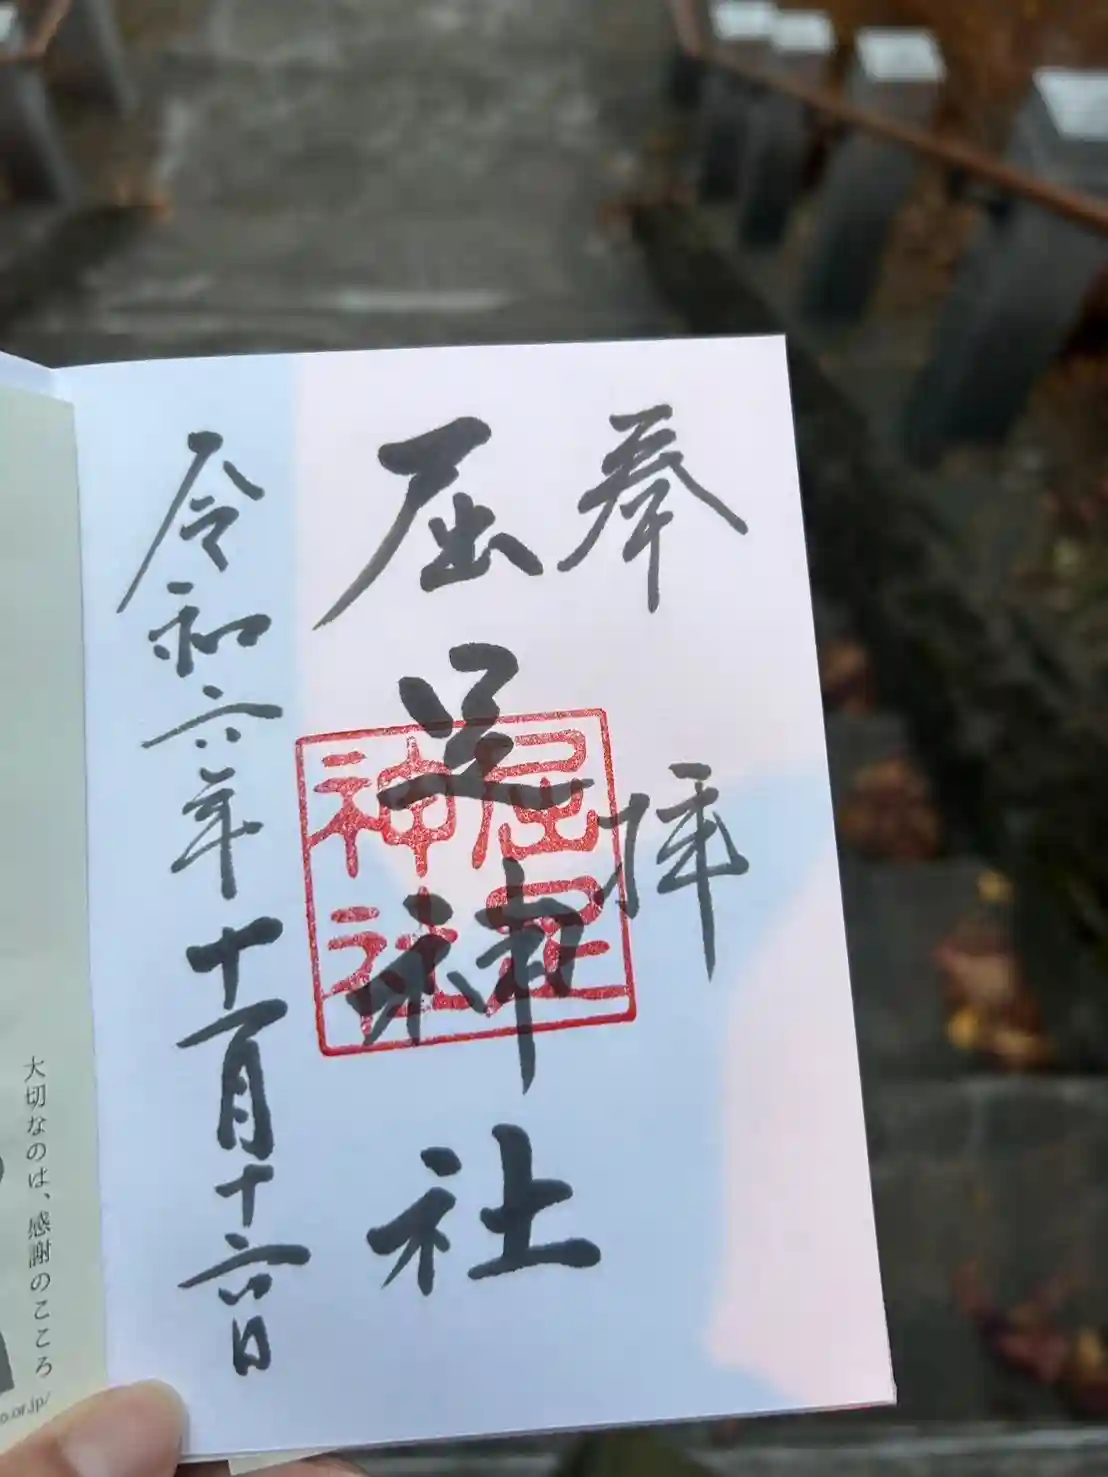 奉拝
屈足神社
屈足
神社
令和六年十一月十六日
大切なのは、感謝のこころ
.or.jp/